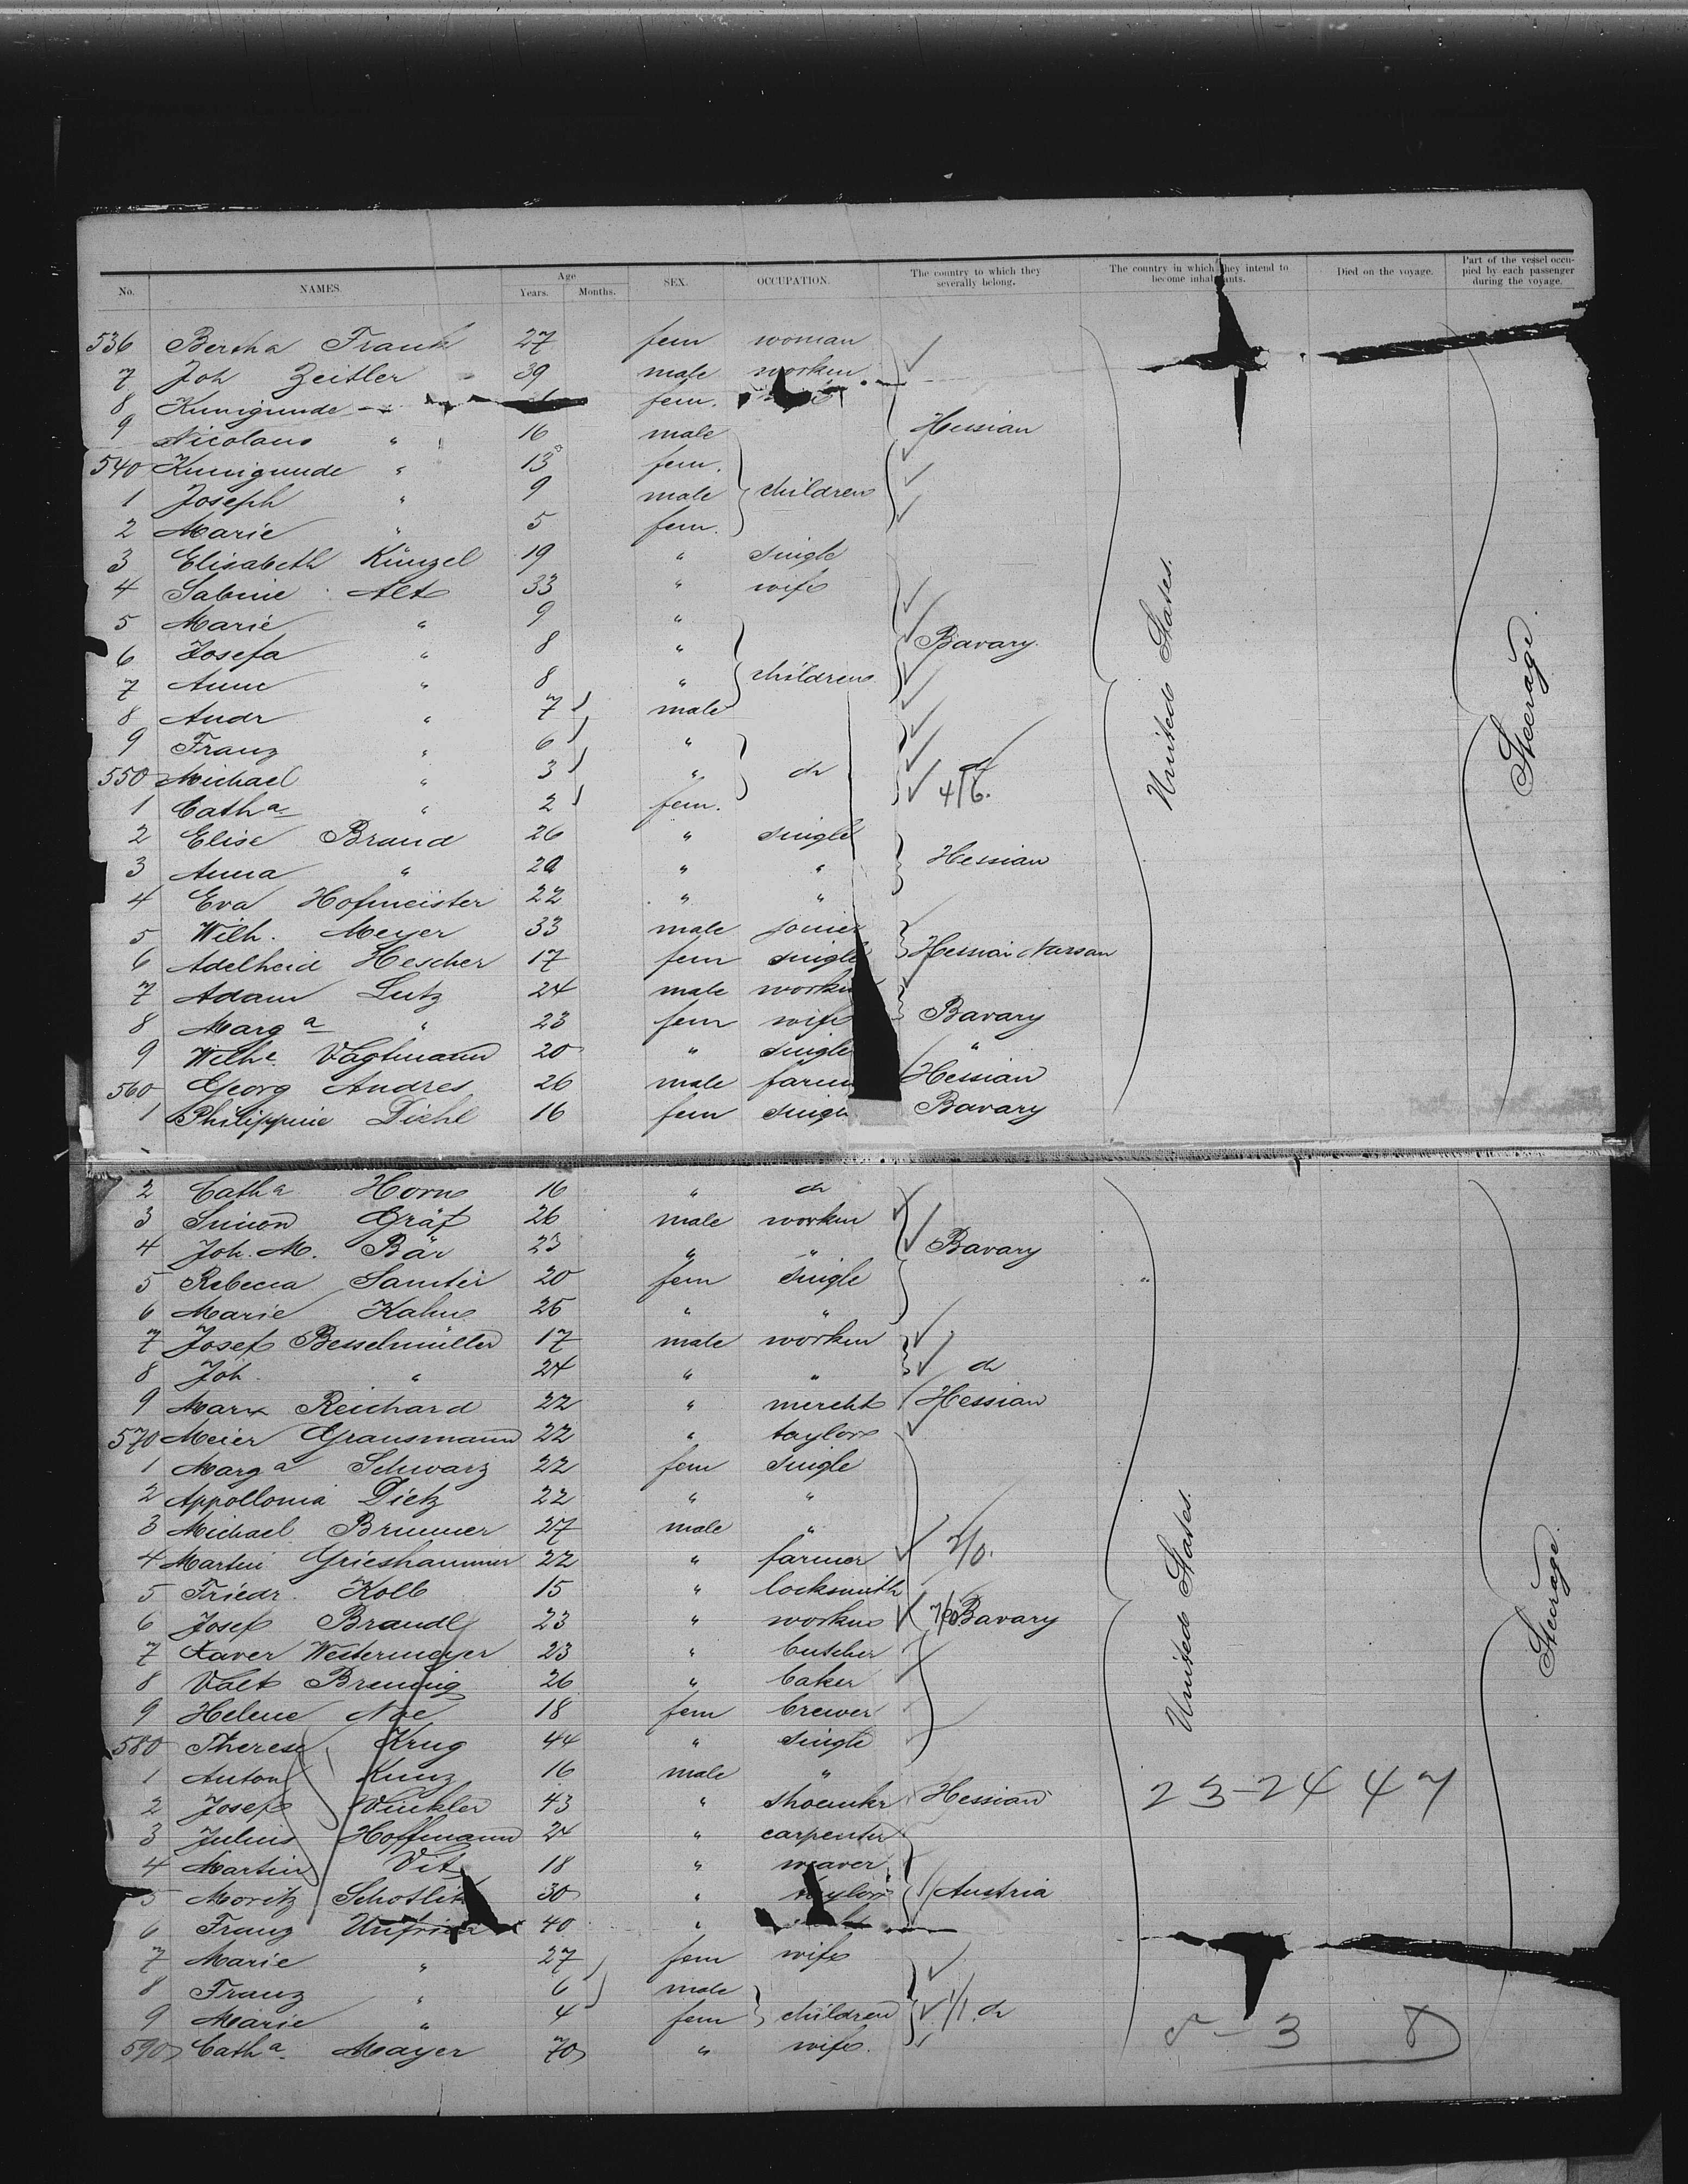 No. NAMES. Age Years. Months. SEX. OCCUPATION. The country to which they severally belong. The country in which they intend to become inhabitants. Died on the voyage. Part of the vessel occupied by each passenger during the voyage.
536 Bertha Frank 27 fem woman
7 Joh Zeitler 39 male worken
8 Kunigunde " fem.
9 Nicolaus " 16 male Hessian
540 Kunigunde " 13 fem.
1 Joseph " 9 male children
2 Marie " 5 fem.
3 Elisabeth Künzel 19 " single
4 Sabine Alt 33 " wife
5 Marie " 9 " Bavary.
6 Josefa " 8 "
7 Anna " 8 " children
8 Andr " 7 male
9 Franz " 6 "
550 Michael " 3 " do do
1 Cath a " 2 fem. 4/6.
2 Elise Brand 26 " single
3 Anna " 20 " " Hessian
4 Eva Hofmeister 22 " "
5 Wilh. Meyer 33 male joiner
6 Adelheid Hescher 17 fem single Hessian Nassau
7 Adam Lutz 24 male worken
8 Marg a " 23 fem wife Bavary
9 Wilhe. Vagtmann 20 " single "
560 Georg Andres 26 male farm Hessian
1 Philippine Diehl 16 fem single Bavary
United States.
Steerage.
2 Cath a Horn 16 " do
3 Simon Gräf 26 male worken
4 Joh. M. Bär 23 " " Bavary
5 Rebecca Samter 20 fem single
6 Marie Kahn 25 " "
7 Josef Besselmüller 17 male worken
8 Joh. " 24 " " do
9 Marx Reichard 22 " mercht Hessian
570 Meier Grausmann 22 " taylor
1 Marg a Schwarz 22 fem single
2 Appollonia Dietz 22 " "
3 Michael Brunner 27 male "
4 Martin Grieshammer 22 " farmer 2/0.
5 Friedr. Kolb 15 " locksmith
6 Josef Brandl 23 " worken Bavary
7 Xaver Westermayer 23 " butcher
8 Valt Breunig 26 " baker
9 Helene Noe 18 fem brewer
580 Therese Krug 44 " single
1 Anton Kunz 16 male "
2 Josef Winkler 43 " shoemkr Hessian
3 Julius Hoffmann 24 " carpenter
4 Martin Vit 18 " weaver
5 Moritz 30 " taylor Austria
6 Franz 40 "
7 Marie " 27 fem wife
8 Franz " 6 male
9 Marie " 4 fem children 1/1 do
590 Cath a Mayer 70 " wife.
United States.
Steerage.
23-24 47